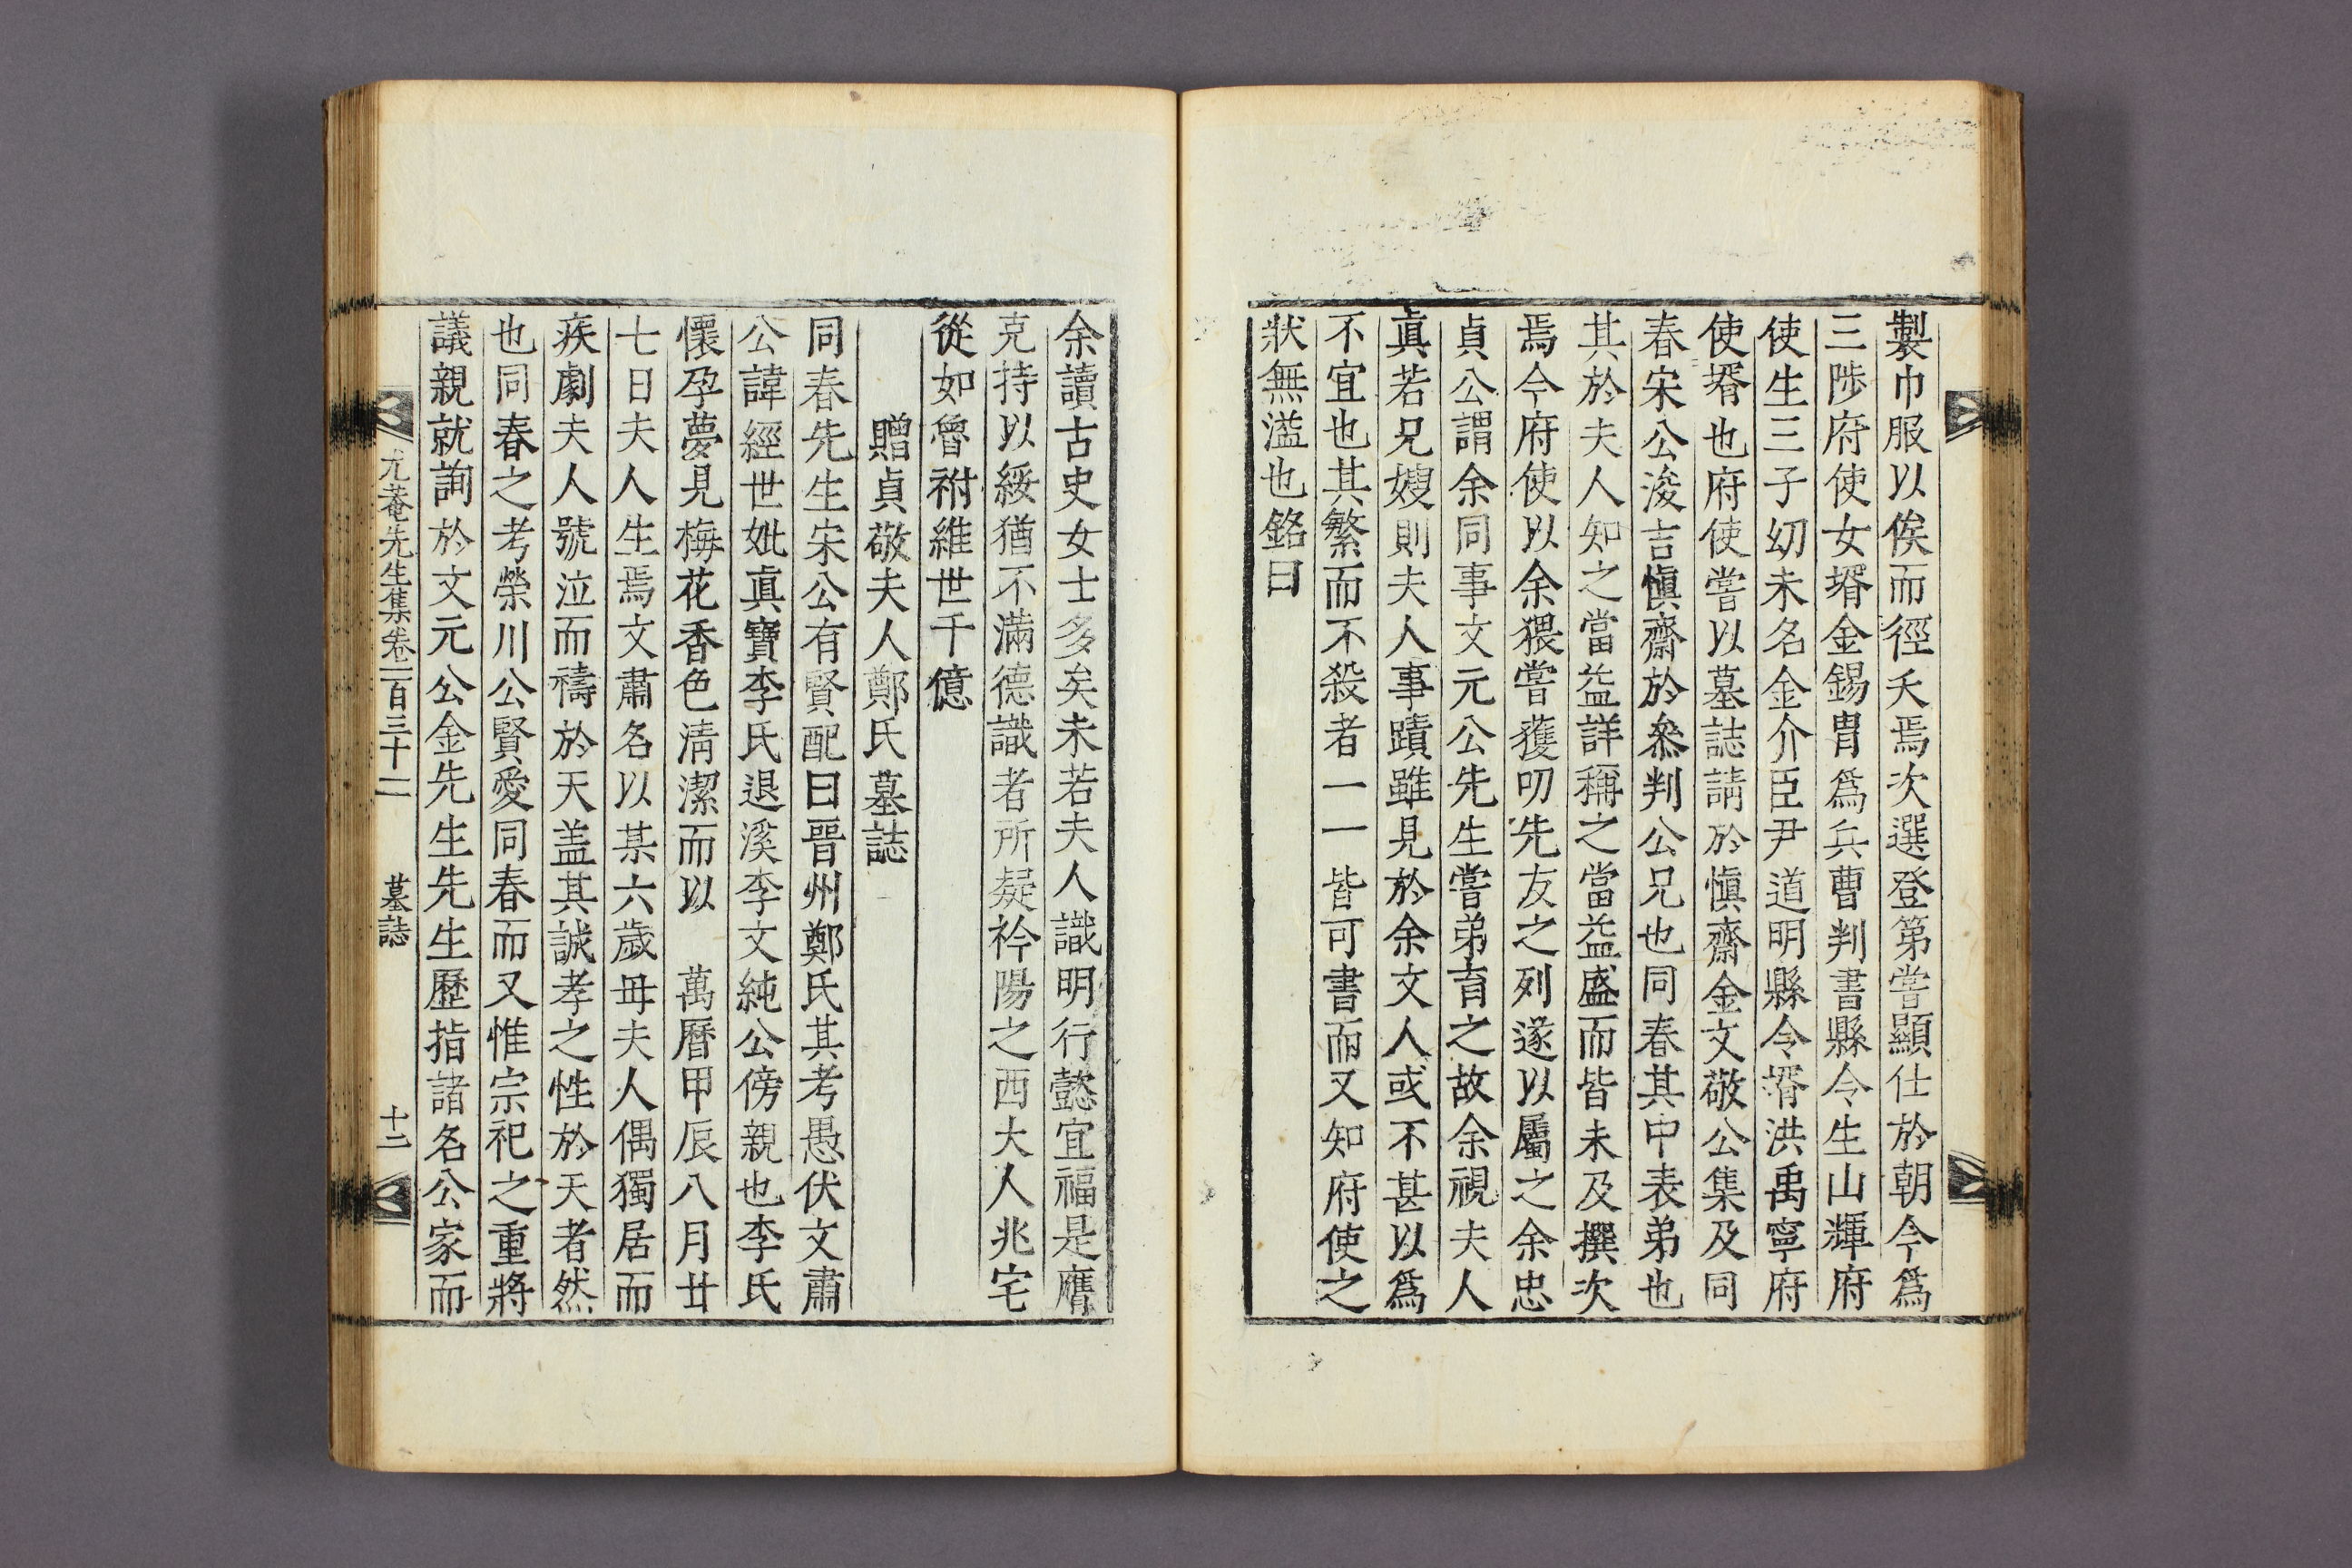 製巾服以俟而徑夭焉次選登第嘗顯仕於朝今爲
三陟府使女壻金錫胄爲兵曹判書縣令生山輝府
使生三子幼未名金介臣尹道明縣令壻洪禹寧府
使壻也府使嘗以墓誌請於愼齋金文敬公集及同
春宋公浚吉愼齋於叅判公兄也同春其中表弟也
其於夫人知之當益詳稱之當益盛而皆未及撰次
焉今府使以余猥嘗獲叨先友之列遂以屬之余忠
貞公謂余同事文元公先生嘗弟育之故余視夫人
眞若兄嫂則夫人事蹟雖見於余文人或不甚以爲
不宜也其繁而不殺者一一皆可書而又知府使之
狀無溢也銘曰
余讀古史女士多矣未若夫人識明行懿宜福是膺
克持以綏猶不滿德識者所疑衿陽之西大人兆宅
從如魯祔維世千億
贈貞敬夫人鄭氏墓誌
同春先生宋公有賢配曰晉州鄭氏其考愚伏文肅
公諱經世妣眞寶李氏退溪李文純公傍親也李氏
懷孕夢見梅花香色淸潔而以 萬曆甲辰八月廿
七日夫人生焉文肅名以某六歲毋夫人偶獨居而
疾劇夫人號泣而禱於天盖其誠孝之性於天者然
也同春之考榮川公賢愛同春而又惟宗祀之重將
議親就詢於文元公金先生先生歷指諸名公家而
尤菴先生集卷一百三十二 墓誌 十二